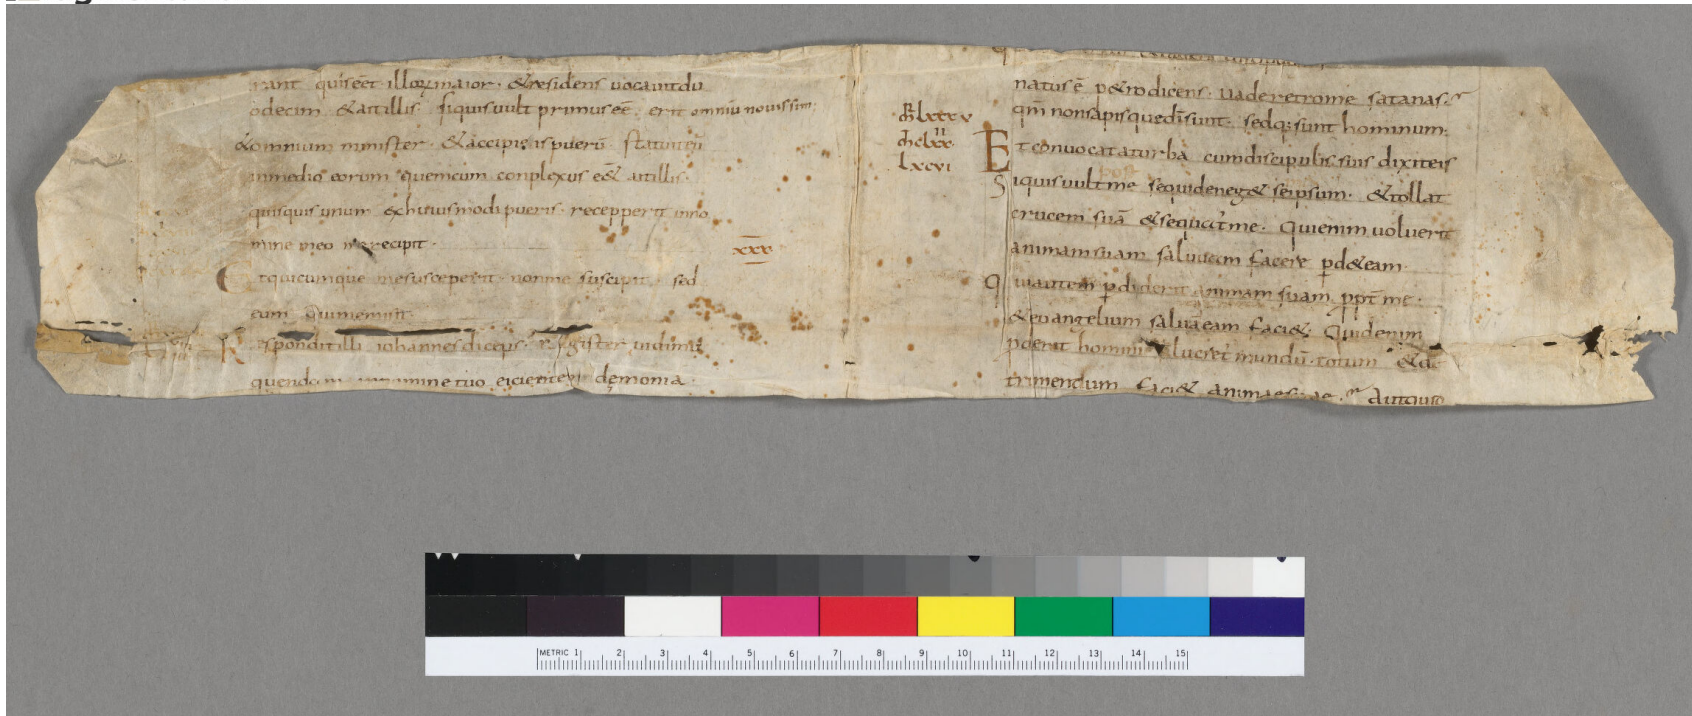 rant quiseet illorum maior · &residens uocauitdu
odecim &aitillis · siquisuult primuseē · erit omniū nouissim;
&omnium minister · &accipiens puerū statuiteū
inmedio eorum quemcum conplexus eēt aitillis ·
quisquis unum exhuiusmodi pueris recepperit inno
mine meo me recipit ·
xxxv
Etquicumque mesusceperit · nonme suscipit sed
eum quimemisit
Responditilli iohannesdicens · magister uidimus
quendam innomine tuo eicientem demonia ·
natusē p&rodicens · uaderetrome satanas ·
qm̄ nonsapis quedīsunt · sedq; sunt hominum ·
mr̄ lxxxv
mt̄ clxx
lxcvi
Et conuocataturba cumdiscipulissuis dixiteis
Siquisuultme sequideneg& seipsum · &tollat
crucem suā &sequat̄me · Quienimuoluerit
animamsuam saluam facere pd&eam ·
Quiautem pdiderit animam suam ppt̄ me ·
&euangelium saluāeam faci& · Quidenim
poderit homini silucret mundū totum &de
trimendum faci& animaesuae · Autquid